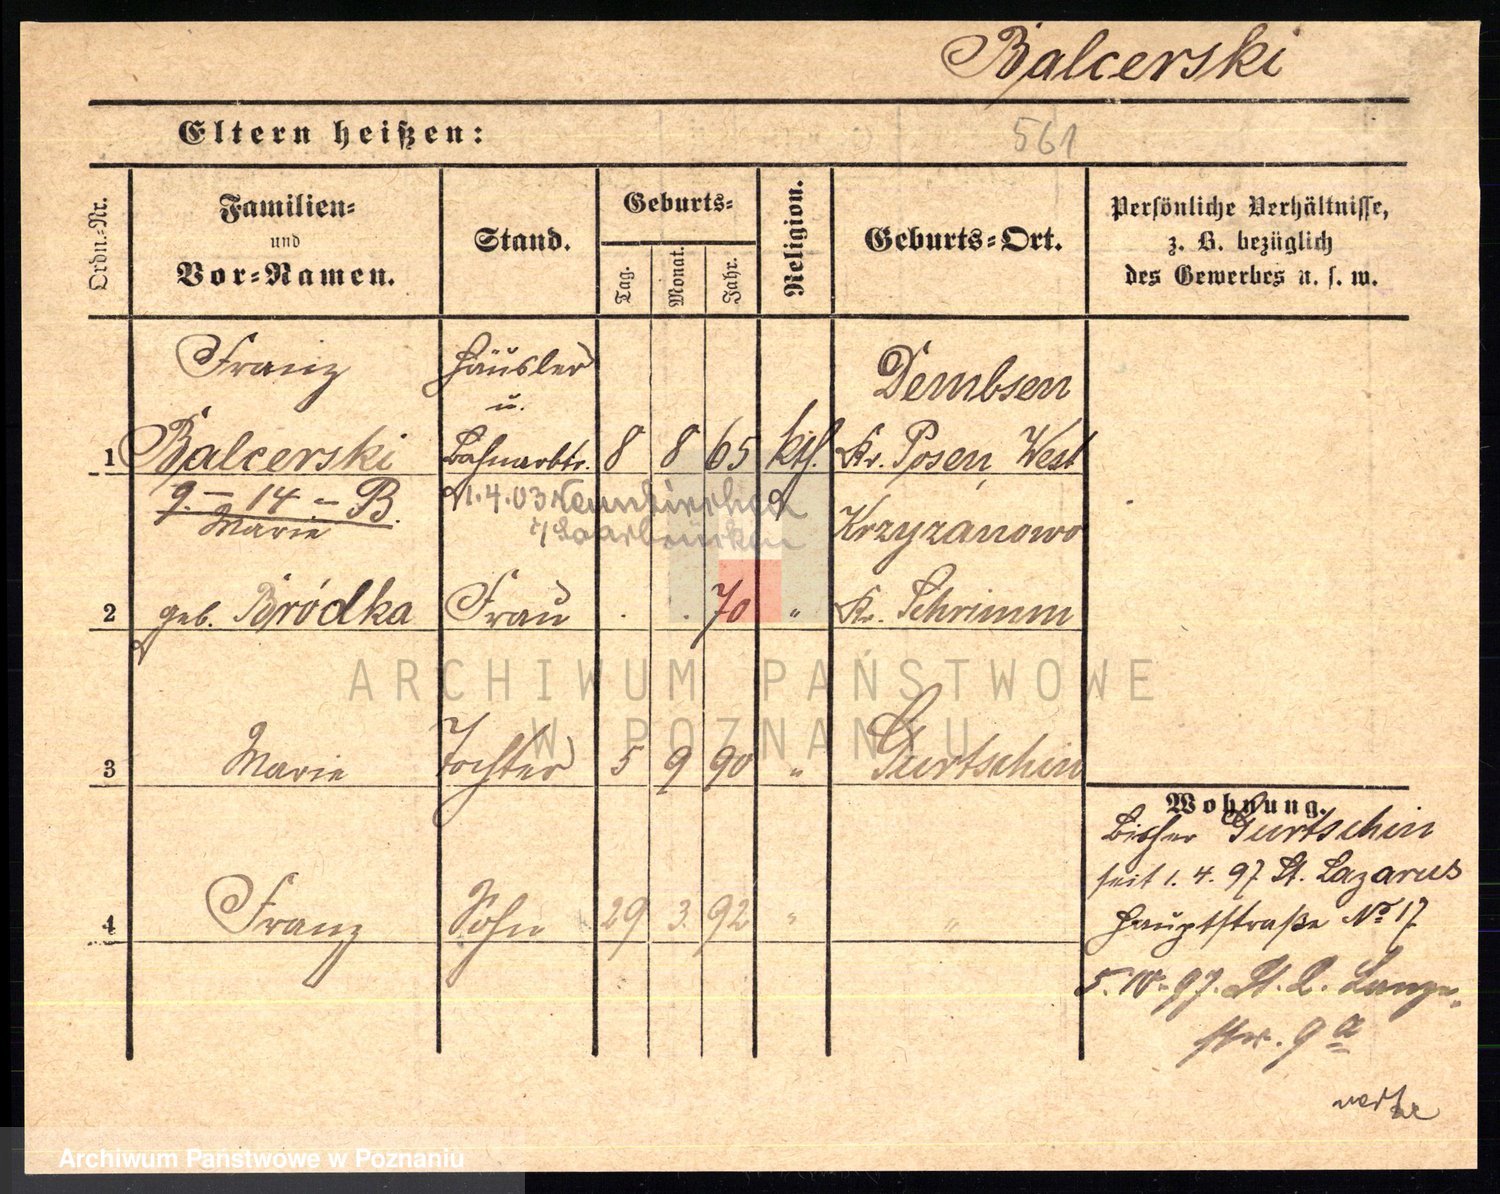 Balcerski
Eltern heißen:
561
Ordn.-Nr.
Familien-
und
Vor-Namen.
Stand.
Geburts-
Tag.
Monat.
Jahr.
Religion.
Geburts-Ort.
Persönliche Verhältnisse,
z. B. bezüglich
des Gewerbes u. s. w.
Franz
Häusler
u.
Dembsen
1 Balcerski Bahnarbtr. 8 8 65 kth. Kr. Posen, West
9. - 14 - B.
1.4.03 Neunkirchen
Marie
Saarbrücken
Krzyzanowo
2 geb. Bródka Frau . . 70 " Kr. Schrimm
ARCHIWUM PAŃSTWOWE
W POZNANIU
3 Marie Tochter 5 9 90 " Gurtschin
Wohnung.
Bisher Gurtschin
seit 1. 4. 97 St. Lazarus
Hauptstraße No 17
4 Franz Sohn 29 3. 92 " "
5. 10. 97. St. L. Lange-
str. 9 a
Archiwum Państwowe w Poznaniu